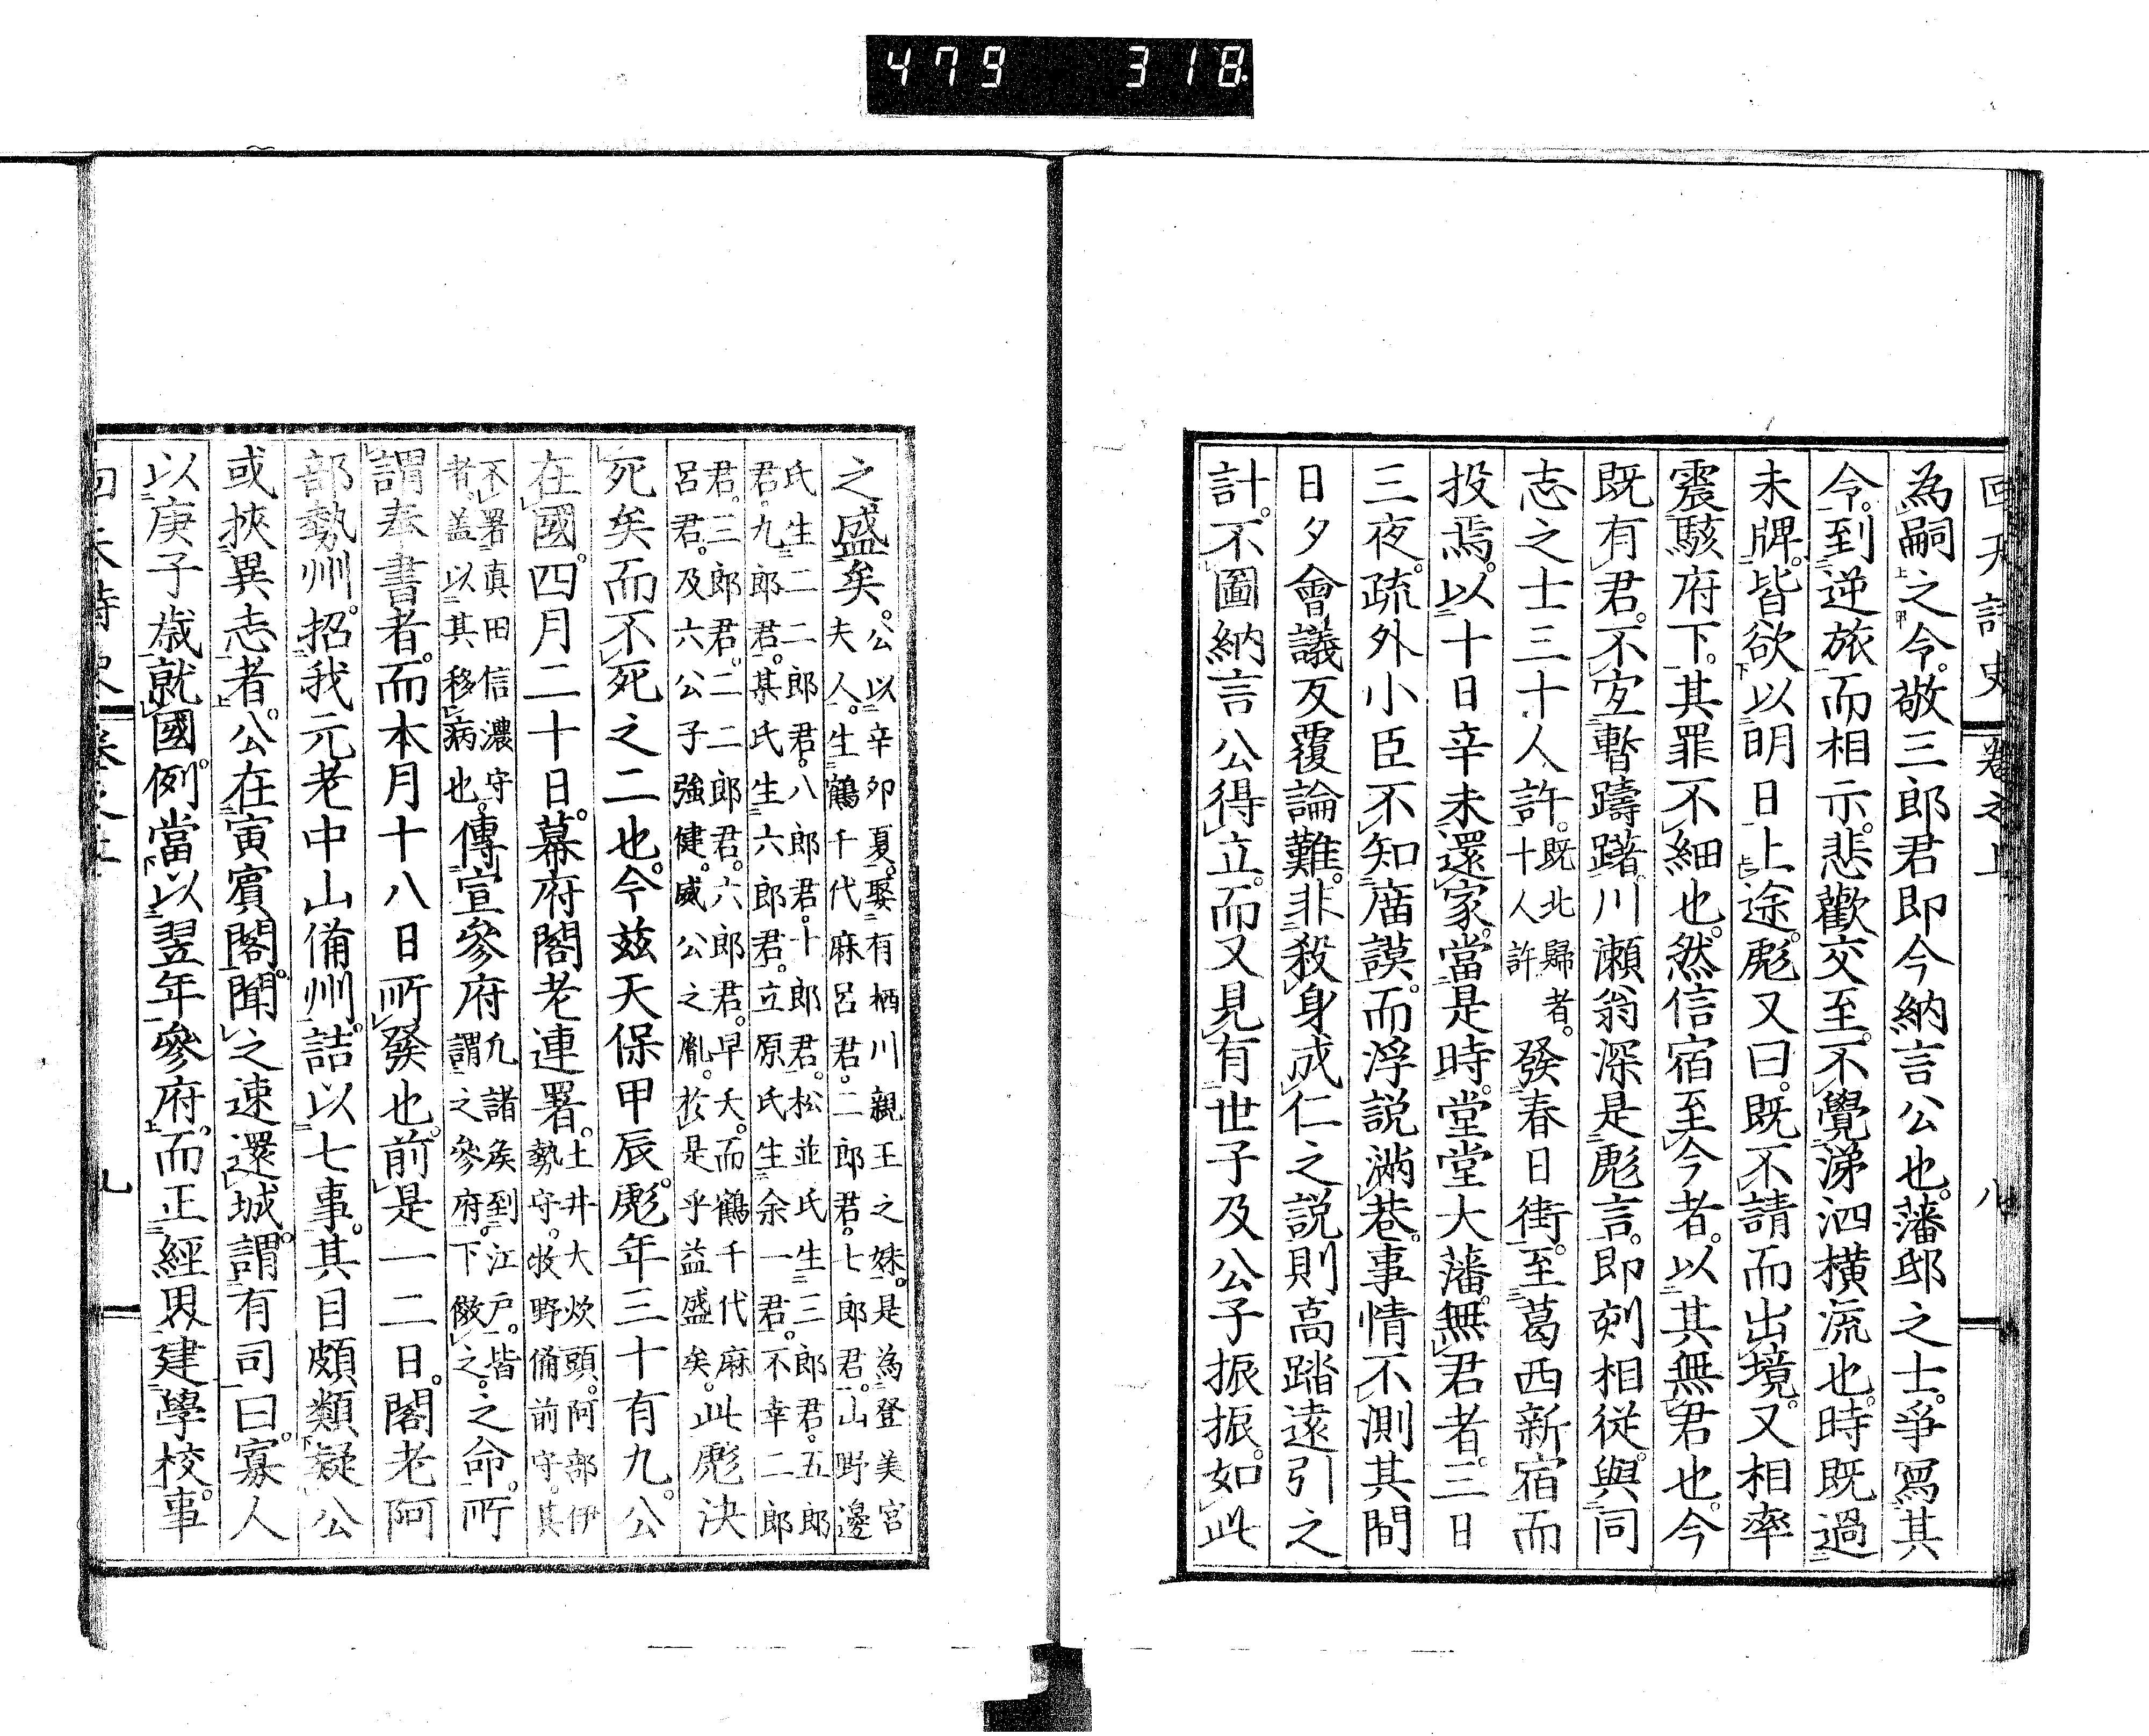 479 318
回天詩史 卷之上 八
為嗣之令。敬三郎君即今納言公也。藩邸之士。爭寫其
令。到逆旅而相示。悲歡交至。不覺涕泗橫流也。時既過
未牌。皆欲以明日上途。彪又曰。既不請而出境。又相率
震駭府下。其罪不細也。然信宿至今者。以其無君也。今
既有君。不宜暫躊躇。川瀨翁深是彪言。即刻相從。與同
志之士三十人許。既北歸者。十人許。發春日街。至葛西新宿而
投焉。以十日辛未還家。當是時。堂堂大藩。無君者。三日
三夜。疏外小臣不知庿謨。而浮説滿巷。事情不測其間
日夕會議反覆論難。非殺身成仁之説則高踏遠引之
計。不圖納言公得立。而又見有世子及公子振振。如此
之盛矣。公以辛卯夏。娶有栖川親王之妹。是為登美宮
夫人。生鶴千代麻呂君。二郎君。七郎君。山野邊
氏生二二郎君。八郎君。十郎君。松並氏生三郎君。五郎
君。九郎君。某氏生六郎君。立原氏生余一君。不幸二郎
君。三郎君。二二郎君。六郎君。早夭。而鶴千代麻
呂君。及六公子強健。威公之胤。於是乎益盛矣。此彪決
死矣而不死之二也。今茲天保甲辰。彪年三十有九。公
在國。四月二十日。幕府閣老連署。土井大炊頭。阿部伊
勢守。牧野備前守。其
不署真田信濃守
者。盖以其移病也。傳宣參府凢諸矦到江戸。皆
謂之參府。下倣之。之命。所
謂奉書者。而本月十八日所發也。前是一二日。閣老阿
部勢州。招我元老中山備州。詰以七事。其目頗類疑公
或挾異志者。公在寅賓閣。聞之速還城。謂有司曰。寡人
以庚子歲就國。例當以翌年參府。而正經界建學校。事
九